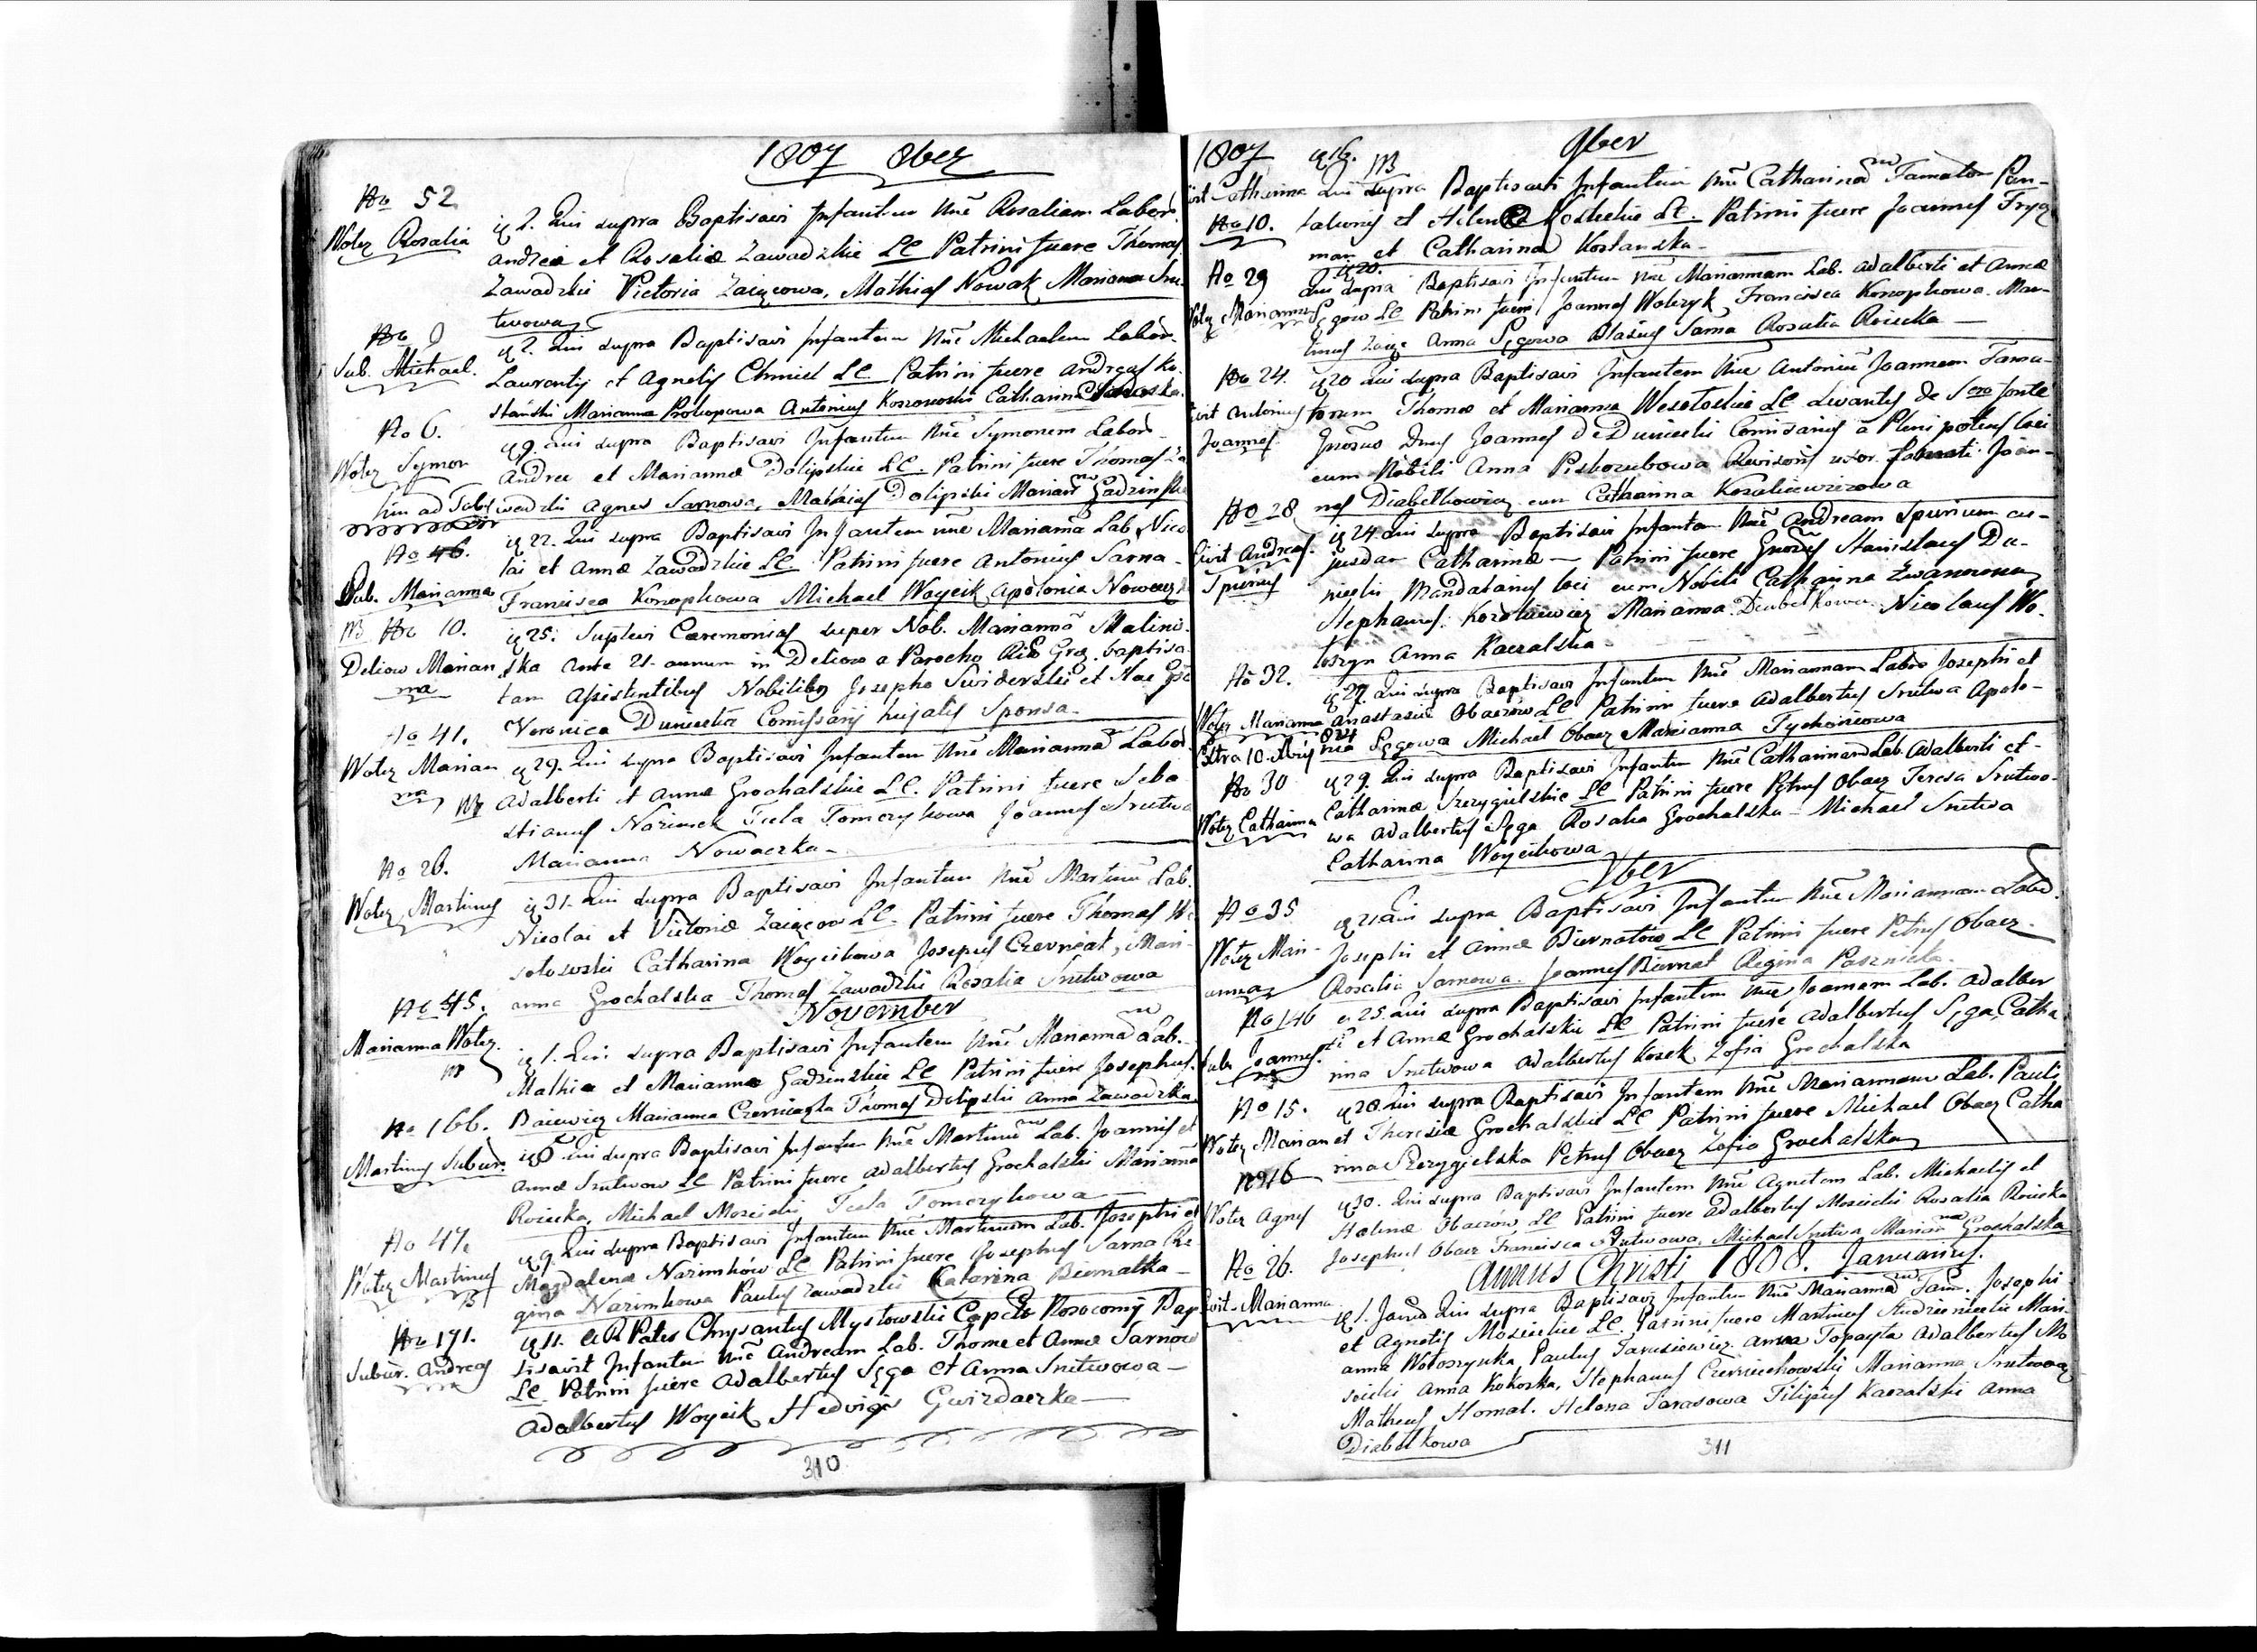 1807 8ber
No 52
Wolez Rosalia
q 2. Qui supra Baptisavi Infantem Nne Rosaliam Labor.
Andreæ et Rosaliæ Zawadzkie LC Patrini fuere Thomas
Zawadzki Victoria Zaięcowa, Mathias Nowak Marianna Snu-
twowa
No 9
Sub. Michael.
q 2. Qui supra Baptisavi Infantem Nne Michaelem Labor.
Laurenty et Agnetis Chmiel LC. Patrini fuere Andreas Ko-
stański Marianna Prokopowa Antonius Catharina
No 6.
Wolez Symon
q 9. Qui supra Baptisavi Infantem Nne Symonem Labor.
Andreæ et Mariannæ Dolipskie LC. Patrini fuere Thomas Za
wadzki Agnes Sarnowa, Mathias Dolipski Marianna Gadzinska
No 46.
Sub. Marianna
q 22. Qui supra Baptisavi Infantem Nne Mariannã Lab. Nico
lai et Annæ Zawadzkie LC. Patrini fuere Antonius Sarna
Francisca Konopkowa Michael Woycik Apolonia
No 10.
Deliow Marian
na
q 25. Suplevi Cæremonias super Nob. Mariannã Malino-
ska ante 21. annum in Deliow a Parocho Græ. baptisa
tam assistentibus Nobilibus Josepho Swiderski et
Veronica Duniecka Comissarij hujatis Sponsa
No 41.
Wolez Marian
na
q 29. Qui supra Baptisavi Infantem Nne Mariannã Labor
Adalberti et Annæ Grochalskie LC. Patrini fuere Seba
stianus Nazimek Tecla Tomczykowa Joannes Snutwa
Marianna Nowaczka
No 26.
Wolez Martinus
q 31. Qui supra Baptisavi Infantem Nne Martinũ Lab.
Nicolai et Victoriæ Zaięcow LC. Patrini fuere Thomas We
sołowski Catharina Woycikowa Josephus Czerniat, Mari-
anna Grochalska Thomas Zawadzki Rosalia Snutwowa
November
No 45.
Marianna Wolez.
q 1. Qui supra Baptisavi Infantem Nne Mariannã Lab.
Mathiæ et Mariannæ Gadzinskie LC Patrini fuere Josephus
Baiewicz Marianna Thomas Dolipski Anna Zawadzka
No 166.
Martinus Subur.
q 5. Qui supra Baptisavi Infantem Nne Martinũ Lab. Joannis et
Annæ Snutwow LC Patrini fuere Adalbertus Grochalski Marianna
Rosicka, Michael Mosciski Tecla Tomczykowa
No 47.
Wolez Martinus
q 9. Qui supra Baptisavi Infantem Nne Martinum Lab. Josephi et
Magdalenæ Nazimków LC Patrini fuere Josephus Sarna Re
gina Nazimkowa Paulus Zawadzki Katarina Biernatka
No 171.
Subur. Andreas
q 11. A R Pater Chrysantus Mysłowski Bap
tisavit Infantem Nne Andream Lab. Thomæ et Annæ Sarnow
LC Patrini fuere Adalbertus Sęga et Anna Snutwowa
Adalbertus Woycik Hedvigis Gwizdaczka
310
1807 q 16. 9ber
Civit Catharina
No 10.
Qui supra Baptisavi Infantem Nne Catharinã Famatam Pan-
talionis et Helenæ LC. Patrini fuere Joannes Fryg
man et Catharina Kostanska
No 29
Wolez Marianna
q 20.
Qui supra Baptisavi Infantem Nne Mariannam Lab. Adalberti et Annæ
Sęgow LC Patrini fuere Joannes Wolczyk Francisca Konopkowa Mar-
tinus Zaięc Anna Sęgowa Blasius Sarna Rosalia Rosicka
No 24.
Civit Antonius
Joannes.
q 20 Qui supra Baptisavi Infantem Nne Antoniũ Joannem Fama-
torum Thomæ et Mariannæ Wesołoskie LC Levantes de Sero fonte
Gnosus Dnus Joannes de Duniecki Comisarius a Plenipotens loci
cum Nobili Anna Piskozubowa Revisoris uxor. Joan-
nes Diabełkowicz cum Catharina Kozakiewiczowa
No 28
Civit Andreas
Spurius
q 24. Qui supra Baptisavi Infantem Nne Andream Spurium cu-
jusdam Catharinæ Patrini fuere Gnosus Stanislaus Du-
niecki Mandatarius loci cum Nobili Catharina Zwanowna
Stephanus Kozakiewicz Marianna Diabełkowa Nicolaus Wo-
łoszyn Anna Kaczalska
No 32.
Wolez Marianna
q 27. Qui supra Baptisavi Infantem Nne Mariannam Labor Josephi et
Anastasiæ Obaczów LC Patrini fuere Adalbertus Snutwa Apolo-
nia Sęgowa Michael Obacz Marianna Tychoniowa
No 30
Wolez Catharina
q 29. Qui supra Baptisavi Infantem Nne Catharinam Lab. Adalberti et
Catharinæ Szczygielskie LC Patrini fuere Petrus Obacz Teresa Snutwo-
wa Adalbertus Sęga Rosalia Grochalska Michael Snutwa
Catharina Woycikowa
Xber
No 35
Wolez Mari-
anna
q 21 Qui supra Baptisavi Infantem Nne Mariannam Labor.
Josephi et Annæ Biernatów LC Patrini fuere Petrus Obacz
Rosalia Sarnowa Joannes Biernat Regina
No 146
Subu Joannes
q 25. Qui supra Baptisavi Infantem Nne Joannem Lab. Adalber
ti et Annæ Grochalskie LC Patrini fuere Adalbertus Sęga, Catha
rina Snutwowa Adalbertus Kosek Zofia Grochalska
No 15.
Wolez Marian
q 28. Qui supra Baptisavi Infantem Nne Mariannam Lab. Pauli
et Theresiæ Grochalskie LC Patrini fuere Michael Obacz Catha
rina Szczygielska Petrus Obacz Zofia Grochalska
No 16
Wolez Agnes
q 30. Qui supra Baptisavi Infantem Nne Agnetem Lab. Michaelis et
Helenæ Obaczów LC Patrini fuere Adalbertus Mosciski Rosalia Rosicka
Josephus Obacz Francisca Snutwowa, Michael Snutwa Marianna Grochalska
Annus Christi 1808. Januarius.
No 26.
Civit. Marianna
q 1. Janua Qui supra Baptisavi Infantem Nne Mariannã Fam. Josephi
et Agnetis Mosciskie LC. Patrini fuere Martinus Mari-
anna Wołoszynka, Paulus Tarusiewicz Anna Topayła Adalbertus Mo
sciski Anna Kokoszka, Stephanus Marianna Snutwowa
Matheus Homal. Helena Tarasowa Filipus Kaczalski Anna
Diabełkowa
311